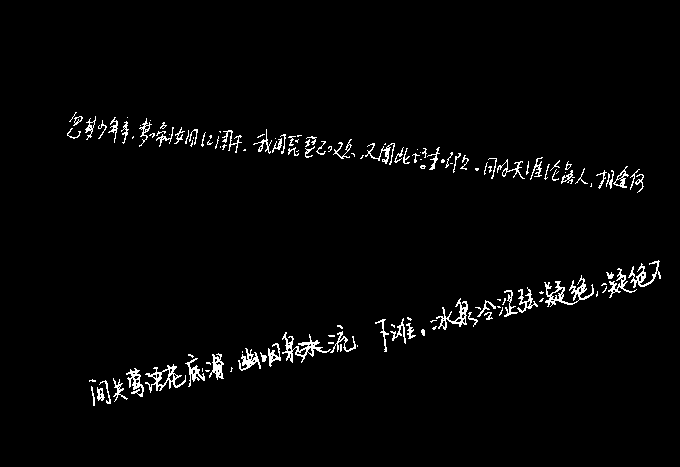 忽梦少年事,梦啼妆泪红阑干。我闻琵琶已叹息,又闻此语重唧唧。同是天涯沦落人,相逢何
间关莺语花底滑,幽咽泉水流 下滩。冰泉冷涩弦凝绝,凝绝不